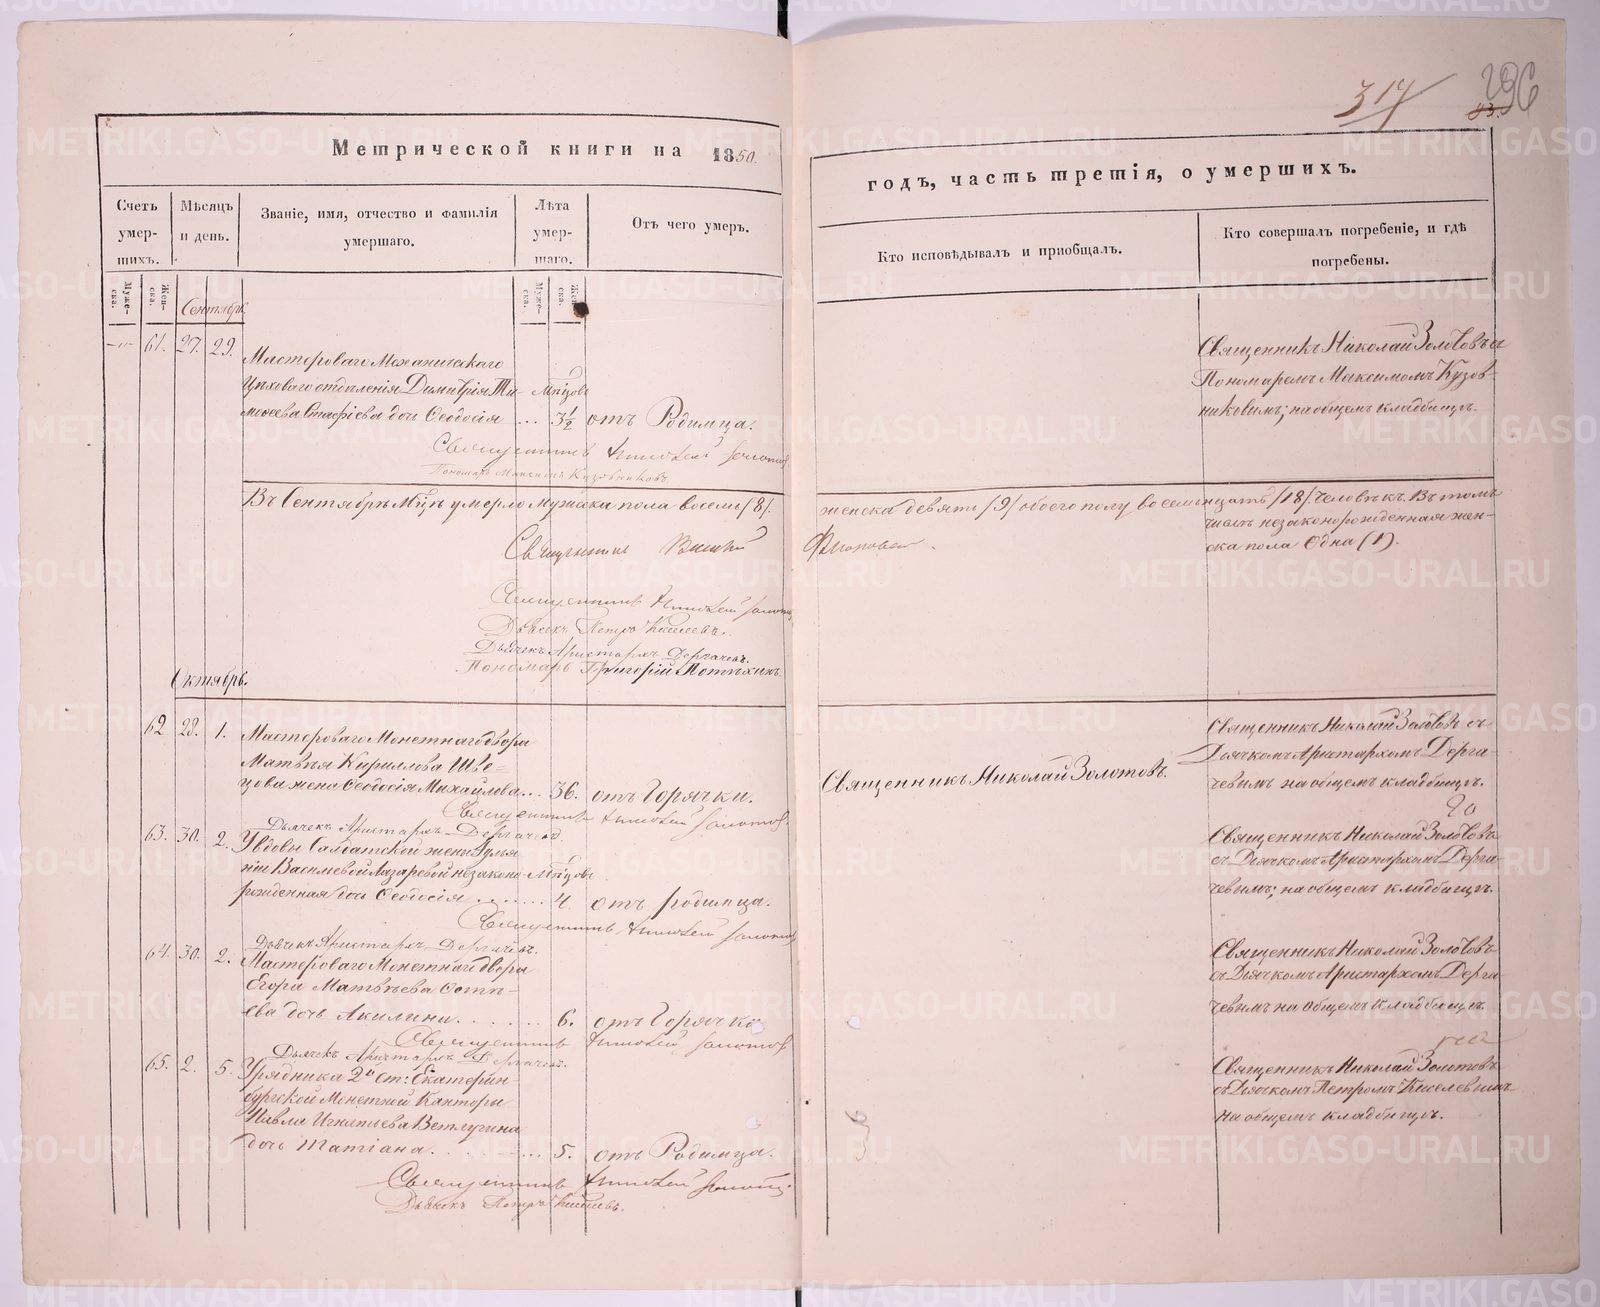 317
296
83.
Метрической книги на 1850.
годъ, часть третія, о умершихъ.
Счетъ умер-шихъ.
Мѣсяцъ и день.
Званіе, имя, отчество и фамилія умершаго.
Лѣта умер-шаго.
Отъ чего умеръ.
Кто исповѣдывалъ и пріобщалъ.
Кто совершалъ погребеніе, и гдѣ погребены.
Муже-ска.
Жен-ска.
Муже-ска.
Жен-ска.
Сентябрь
61. 27. 29.
Мастероваго Механическаго
Цѣховаго отдѣленія Димитрія Ти-
моѳеева дочь Ѳеодосія ... 3½ отъ Родимца.
Священникъ Николай Золотов
Пономарь Максимъ Кузовниковъ
Священникъ Николай Золотовъ съ
Пономаремъ Максимомъ Кузов-
никовымъ; на общемъ кладбищѣ.
Въ Сентябрѣ М-цѣ умерло мужеска пола восемь /8/.
женска девять /9/ обоего полу восемьнадцать /18/ Человѣкъ. Въ томъ
числѣ незаконорожденная жен-
ска пола Одна (1).
Священникъ
Священникъ Николай Золотов
Дьячекъ Петръ Киселевъ.
Дьячекъ Аристархъ Дергачевъ.
Пономарь Григорій Потѣхинъ.
Октябрь.
62 28. 1. Мастероваго Монетнаго двора
Матвѣя Кириллова Шве-
цова жена Ѳеодосія Михайлова ... 36. отъ Горячки.
Священникъ Николай Золотов
Дьячекъ Аристархъ Дергачев
Священникъ Николай Золотовъ.
Священникъ Николай Золотовъ съ
Дьячкомъ Аристархомъ Дерга-
чевымъ на общемъ кладбищѣ.
63. 30. 2. Увдовы Салдатской жены
Васильевой Лазаревой незаконо-
рожденная дочь Ѳеодосія ....... 4. отъ родимца.
Священникъ Николай Золотов
Дьячекъ Аристархъ Дергачевъ.
Священникъ Николай Золотовъ
съ Дьячкомъ Аристархомъ Дерга-
чевымъ; на общемъ кладбищѣ.
64. 30. 2. Мастероваго Монетнаго двора
Егора Матвѣева
дочь Акилина ....... 6. отъ Горячки
Священникъ Николай Золотов
Дьячекъ Аристархъ Дергачев
Священникъ Николай Золотовъ
съ Дьячкомъ Аристархомъ Дерга-
чевымъ на общемъ кладбищѣ.
65. 2. 5. Урядника 2й ст: Екатерин-
бургской Монетной Канторы
Павла Игнатьева Ветлугина
дочь Татіана ....... 5. отъ Родимца.
Священникъ Николай Золотов
Дьячекъ Петръ Киселевъ.
Священникъ Николай Золотовъ
съ Дьячкомъ Петромъ Киселевымъ
на общемъ кладбищѣ.
METRIKI.GASO-URAL.RU